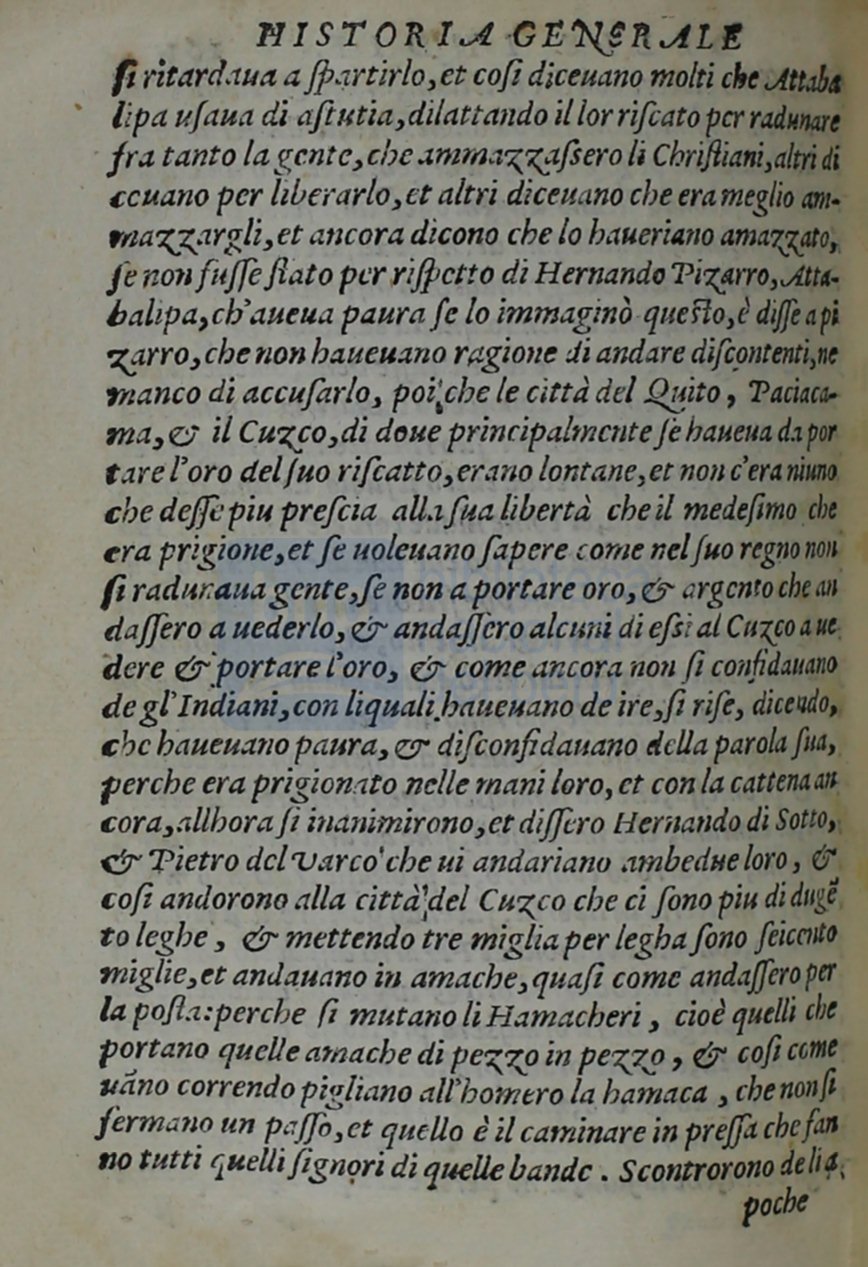 HISTORIA GENERALE
ſi ritardaua a ſpartirlo, et coſi diceuano molti che Attaba
lipa uſaua di aſtutia, dilattando il lor riſcato per radunare
fra tanto la gente, che ammazzaſsero li Chriſtiani, altri di
ceuano per liberarlo, et altri diceuano che era meglio am-
mazzargli, et ancora dicono che lo haueriano amazzato,
ſe non fuſſe ſtato per riſpetto di Hernando Pizarro, Atta-
balipa, ch'aueua paura ſe lo immaginò queſto, è diſſe a pi
zarro, che non haueuano ragione di andare diſcontenti, ne
manco di accuſarlo, poi che le città del Quito, Paciaca-
ma, & il Cuzco, di doue principalmente ſe haueua da por
tare l'oro del ſuo riſcatto, erano lontane, et non c'era niuno
che deſſe piu preſcia alla ſua libertà che il medeſimo che
era prigione, et ſe uoleuano ſapere come nel ſuo regno non
ſi radunaua gente, ſe non a portare oro, & argento che an
daſſero a uederlo, & andaſſero alcuni di eſsi al Cuzco a ue
dere & portare l'oro, & come ancora non ſi confidauano
de gl'Indiani, con liquali haueuano de ire, ſi riſe, dicendo,
che haueuano paura, & diſconfidauano della parola ſua,
perche era prigionato nelle mani loro, et con la cattena an
cora, allhora ſi inanimirono, et diſſero Hernando di Sotto,
& Pietro del Varco che ui andariano ambedue loro, &
coſi andorono alla città del Cuzco che ci ſono piu di dugẽ
to leghe, & mettendo tre miglia per legha ſono ſeicento
miglie, et andauano in amache, quaſi come andaſſero per
la poſta: perche ſi mutano li Hamacheri, cioè quelli che
portano quelle amache di pezzo in pezzo, & coſi come
uãno correndo pigliano all'homero la hamaca, che non ſi
fermano un paſſo, et quello è il caminare in preſſa che fan
no tutti quelli ſignori di quelle bande. Scontrorono de li a
poche